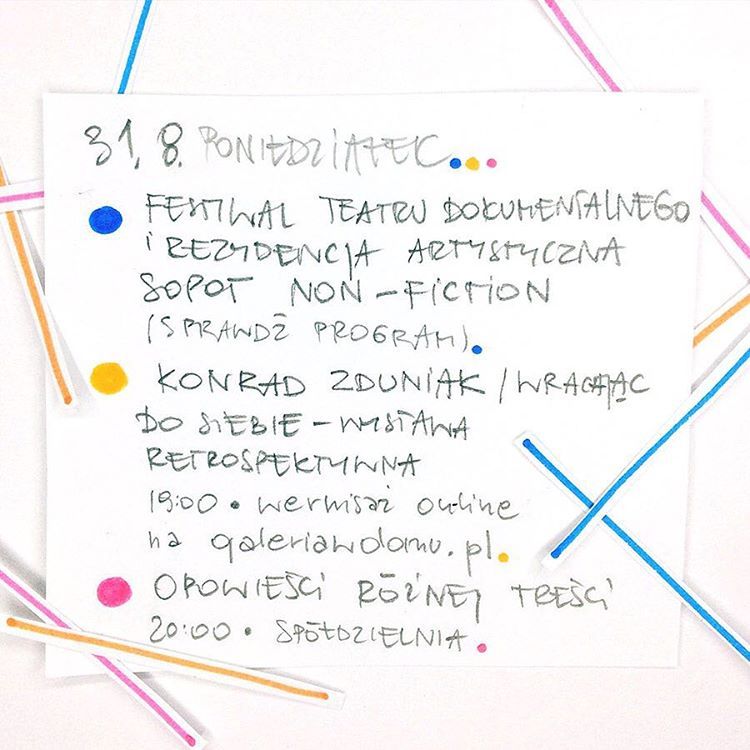 31.8. PONIEDZIAŁEK...
FESTIWAL TEATRU DOKUMENTALNEGO
I REZYDENCJA ARTYSTYCZNA
SOPOT NON-FICTION
(SPRAWDŹ PROGRAM).
KONRAD ZDUNIAK / WRACAJĄC
DO SIEBIE – WYSTAWA
RETROSPEKTYWNA
19:00 • wernisaż on-line
na galeriawdomu.pl.
OPOWIEŚCI RÓŻNEJ TREŚCI
20:00 • SPÓŁDZIELNIA.